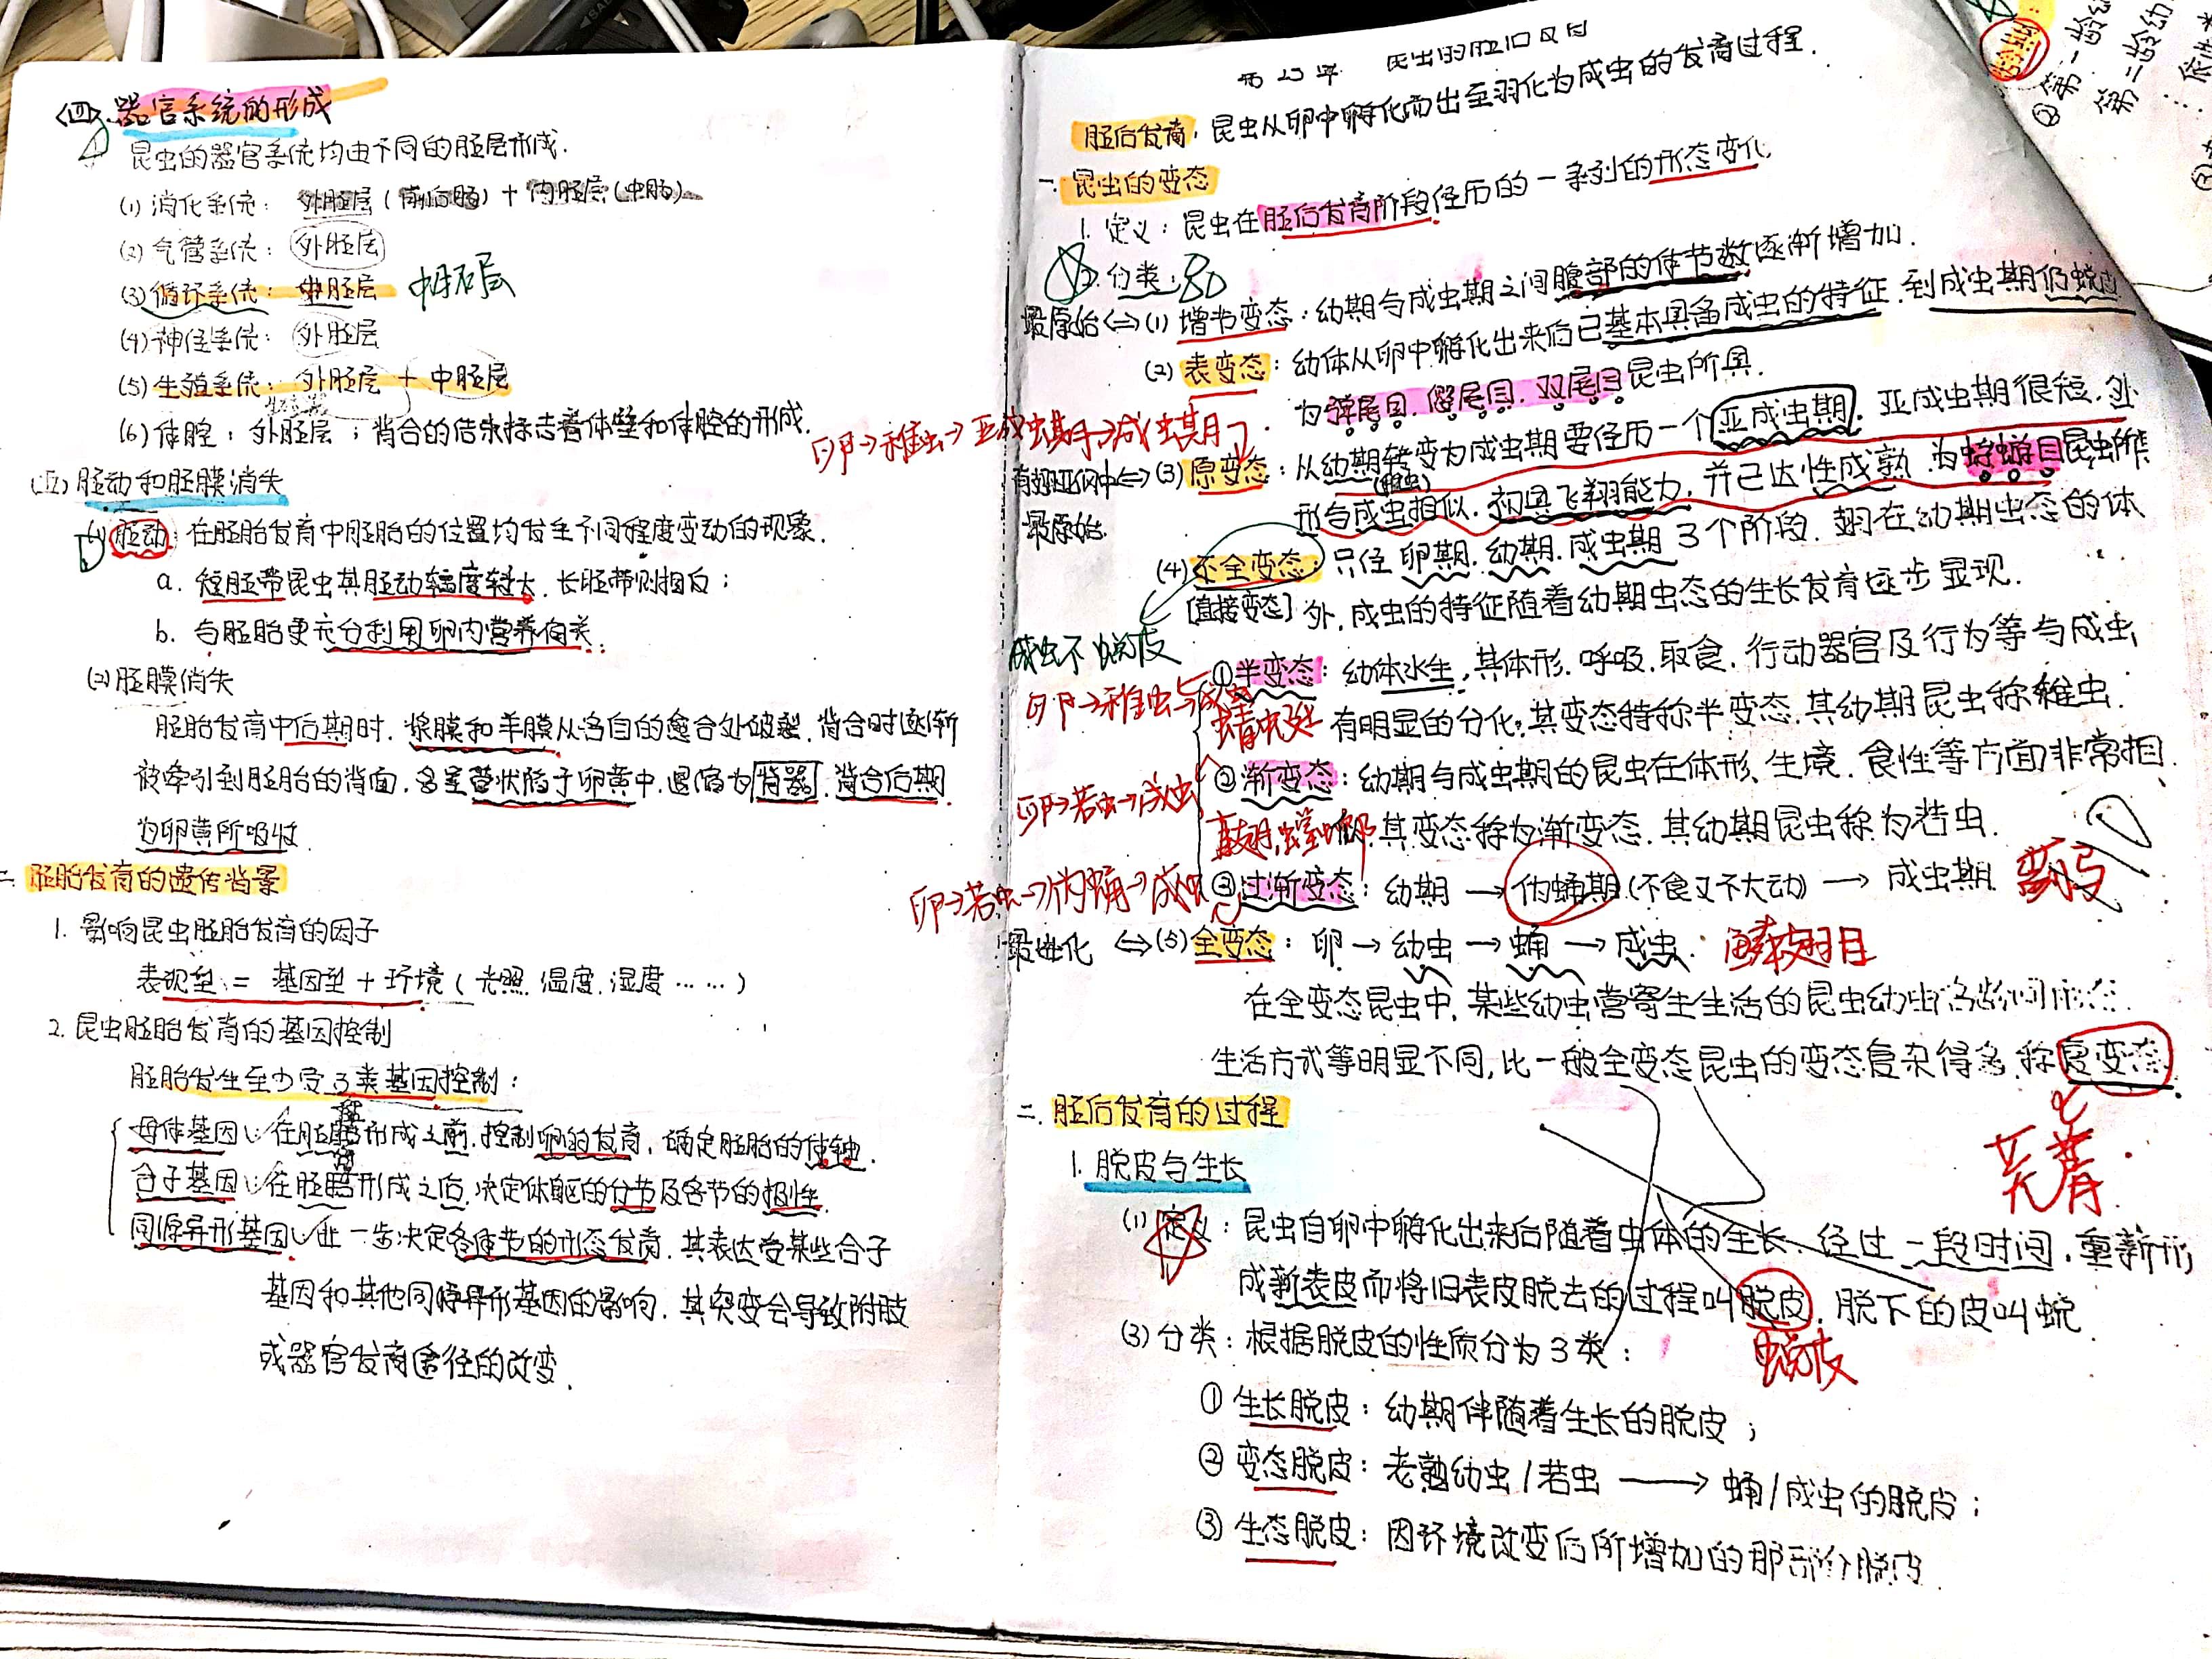 <四>. 器官系统的形成
昆虫的器官系统均由不同的胚层形成.
(1) 消化系统: 外胚层(前后肠) + 内胚层(中肠)
(2) 气管系统: 外胚层
(3) 循环系统: 中胚层 中胚层
(4) 神经系统: 外胚层
(5) 生殖系统: 外胚层 + 中胚层
(6) 体腔: 外胚层; 背合的结束标志着体壁和体腔的形成.
(五) 胚动和胚膜消失
(1) 胚动: 在胚胎发育中胚胎的位置均发生不同程度变动的现象.
a. 短胚带昆虫其胚动幅度较大, 长胚带则相反;
b. 与胚胎更充分利用卵内营养有关.
(2) 胚膜消失
胚胎发育中后期时, 浆膜和羊膜从各自的愈合处破裂, 背合时逐渐
被牵引到胚胎的背面, 多呈管状陷于卵黄中, 退缩为背器, 背合后期
为卵黄所吸收.
二. 胚胎发育的遗传背景
1. 影响昆虫胚胎发育的因子
表现型 = 基因型 + 环境 ( 光照. 温度. 湿度 …… )
2. 昆虫胚胎发育的基因控制
胚胎发生至少受3类基因控制:
母体基因: 在胚胎形成之前, 控制卵的发育, 确定胚胎的体轴.
合子基因: 在胚胎形成之后, 决定体躯的分节及各节的极性.
同源异形基因: 进一步决定各体节的形态发育. 其表达受某些合子
基因和其他同源异形基因的影响. 其突变会导致附肢
或器官发育途径的改变.
胚后发育: 昆虫从卵中孵化而出至羽化为成虫的发育过程.
一. 昆虫的变态
1. 定义: 昆虫在胚后发育阶段经历的一系列的形态变化
2. 分类:
最原始 ⇔ (1) 增节变态: 幼期与成虫期之间腹部的体节数逐渐增加.
(2) 表变态: 幼体从卵中孵化出来后已基本具备成虫的特征. 到成虫期仍蜕皮
为弹尾目. 双尾目昆虫所具.
卵→稚虫→亚成虫期→成虫期
有翅亚纲中最原始 ⇔ (3) 原变态: 从幼期(稚虫)转变为成虫期要经历一个亚成虫期. 亚成虫期很短. 外
形与成虫相似. 初具飞翔能力, 并已达性成熟. 为蜉蝣目昆虫所
(4) 不全变态: 只经卵期. 幼期. 成虫期 3个阶段. 翅在幼期虫态的体
[直接变态] 外, 成虫的特征随着幼期虫态的生长发育逐步显现.
成虫不蜕皮
① 半变态: 幼体水生, 其体形. 呼吸. 取食. 行动器官及行为等与成虫
蜻蜓 有明显的分化; 其变态特称半变态. 其幼期昆虫称稚虫.
② 渐变态: 幼期与成虫期的昆虫在体形、生境. 食性等方面非常相
卵→若虫→成虫
其变态称为渐变态. 其幼期昆虫称为若虫.
卵→若虫→伪蛹→成虫 ③ 过渐变态: 幼期 → 伪蛹期 (不食又不大动) → 成虫期. 蓟马
最进化 ⇔ (5) 全变态: 卵 → 幼虫 → 蛹 → 成虫. 鳞翅目
在全变态昆虫中, 某些幼虫营寄生生活的昆虫幼虫
生活方式等明显不同, 比一般全变态昆虫的变态复杂得多. 称复变态
芫菁
二. 胚后发育的过程
1. 脱皮与生长
(1) 定义: 昆虫自卵中孵化出来后随着虫体的生长. 经过一段时间. 重新形
成新表皮而将旧表皮脱去的过程叫脱皮. 脱下的皮叫蜕.
蜕皮
(3) 分类: 根据脱皮的性质分为3类:
① 生长脱皮: 幼期伴随着生长的脱皮;
② 变态脱皮: 老熟幼虫/若虫 → 蛹/成虫的脱皮;
③ 生态脱皮: 因环境改变后所增加的那部分脱皮.